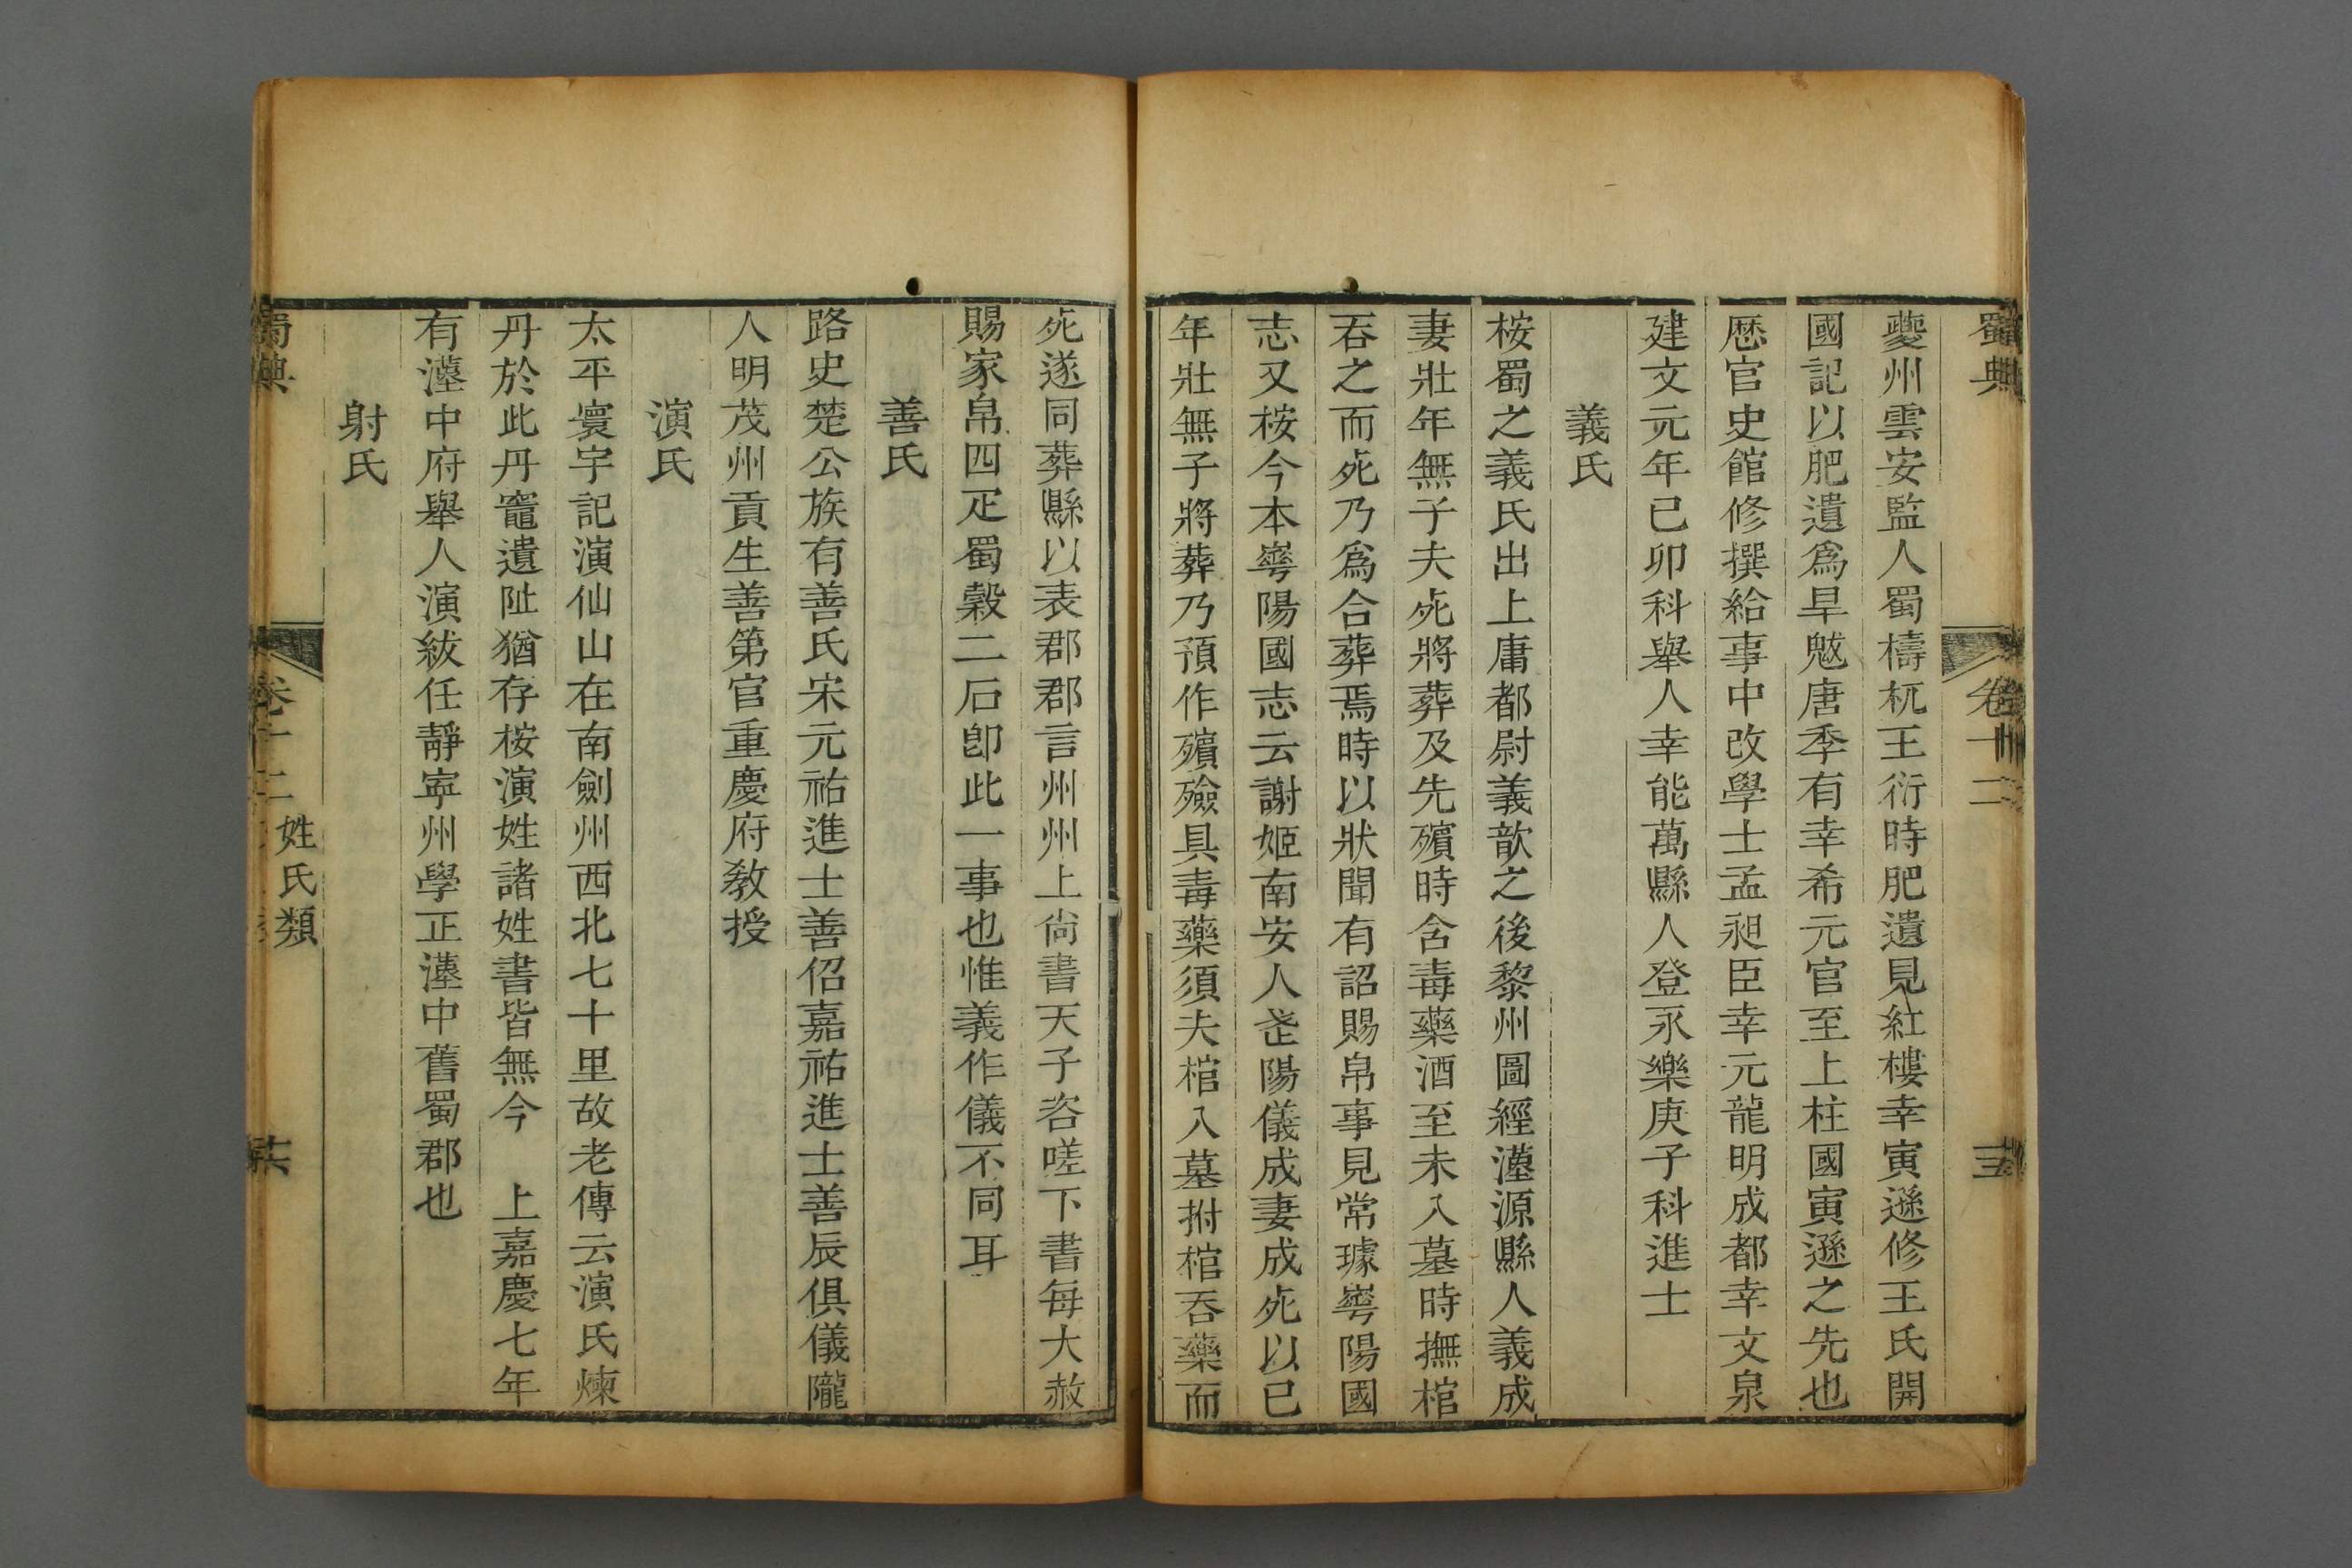 蜀典
卷十二
夔州雲安監人蜀檮杌王衍時肥遺見紅樓幸寅遜修王氏開
國記以肥遺爲旱魃唐季有幸希元官至上柱國寅遜之先也
歷官史館修撰給事中改學士孟昶臣幸元龍明成都幸文泉
建文元年已卯科舉人幸能萬縣人登永樂庚子科進士
義氏
桉蜀之義氏出上庸都尉義歆之後黎州圖經漢源縣人義成
妻壯年無子夫死將葬及先殯時含毒藥酒至未入墓時撫棺
吞之而死乃爲合葬焉時以狀聞有詔賜帛事見常璩華陽國
志又桉今本華陽國志云謝姬南安人武陽儀成妻成死以已
年壯無子將葬乃預作殯殮具毒藥須夫棺入墓拊棺吞藥而
死遂同葬縣以表郡郡言州州上尙書天子咨嗟下書每大赦
賜家帛四疋蜀穀二石卽此一事也惟義作儀不同耳
善氏
路史楚公族有善氏宋元祐進士善佋嘉祐進士善辰俱儀隴
人明茂州貢生善第官重慶府敎授
演氏
太平寰宇記演仙山在南劍州西北七十里故老傳云演氏煉
丹於此丹竈遺阯猶存桉演姓諸姓書皆無今　上嘉慶七年
有漢中府舉人演紱任靜寜州學正漢中舊蜀郡也
射氏
蜀典
卷十二
姓氏類